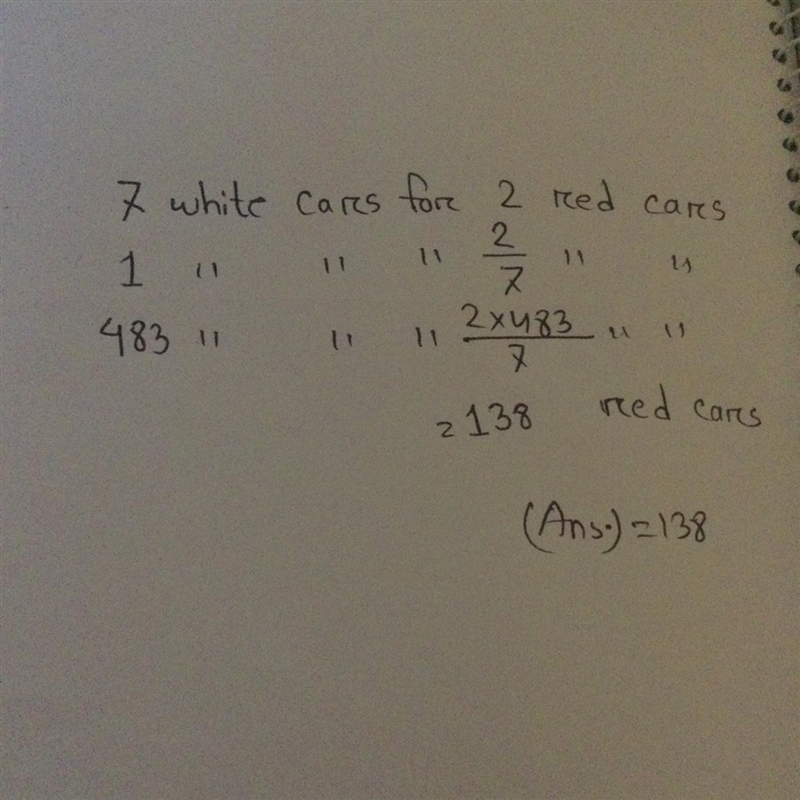 7 white cars for 2 red cars
1 " " " 2/7 " "
483 " " " 2×483/7 " "
= 138 red cars
(Ans.) = 138